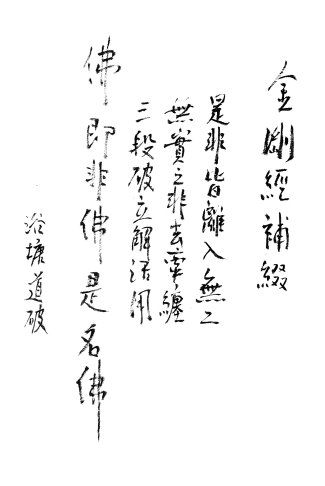 金剛經補綴
是非皆離入無二
無實之非去蔽纏
三段破立解活用
佛即非佛是名佛
浴塘道破